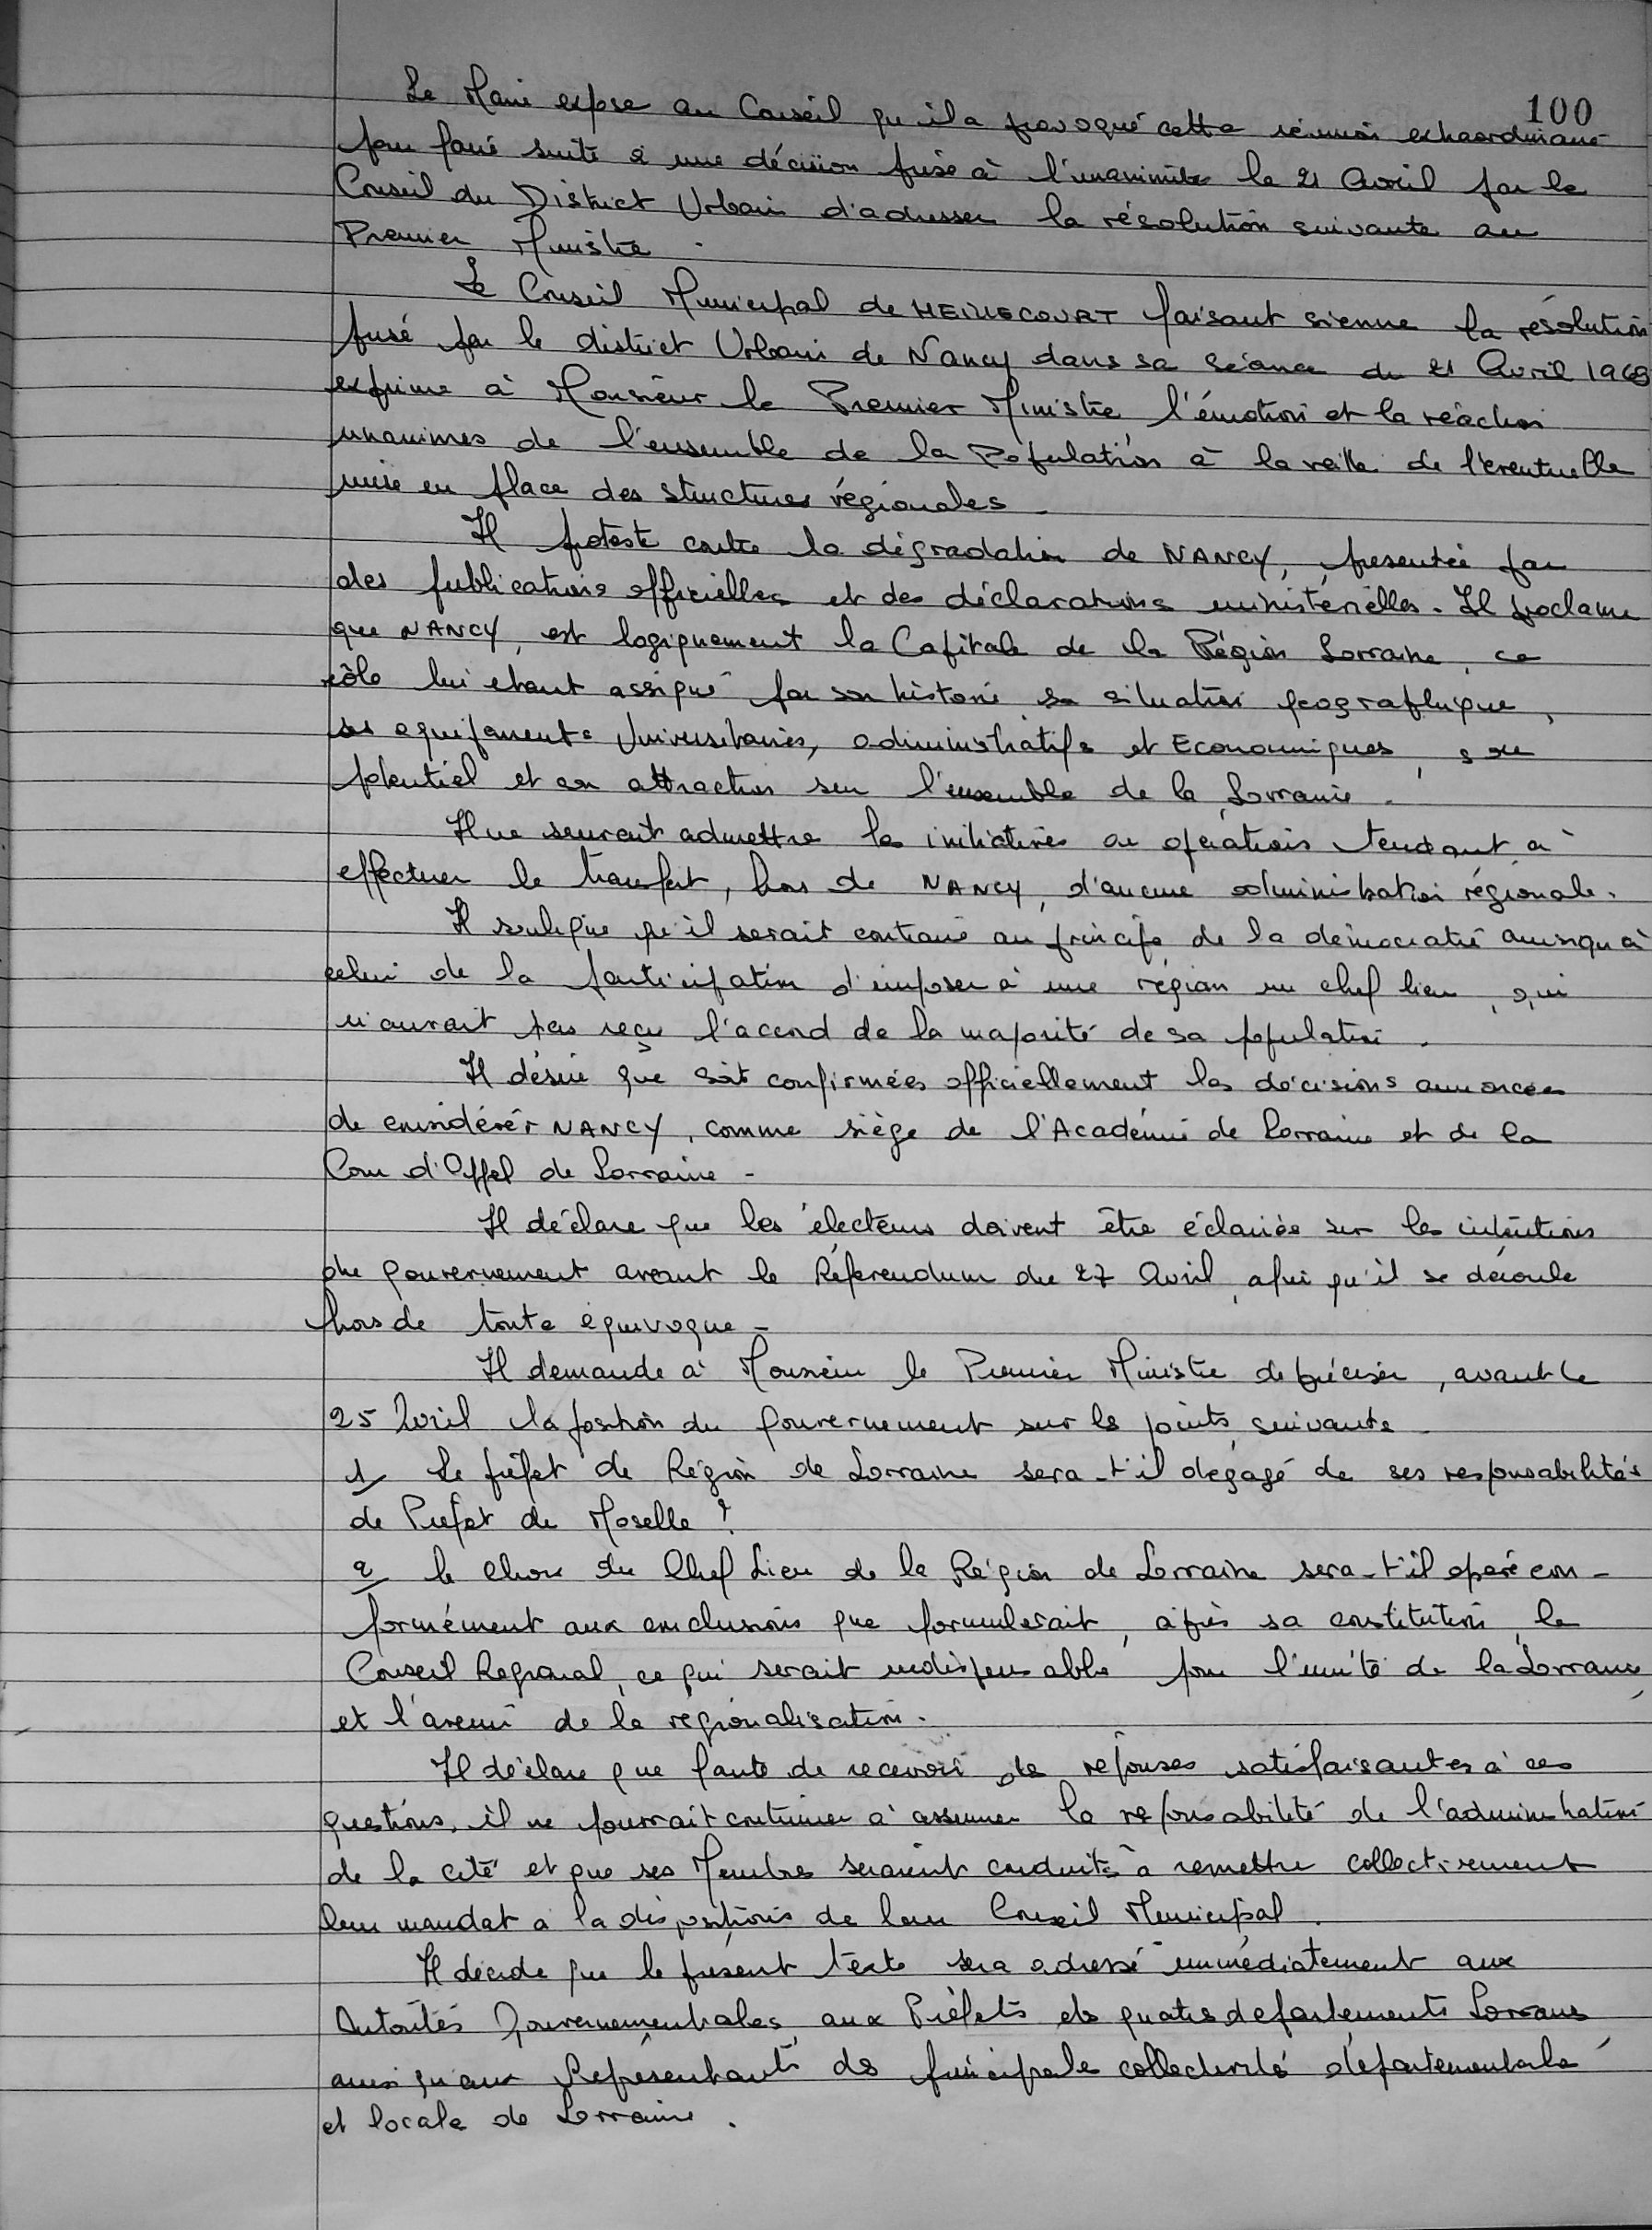 100
Le Maire expose au Conseil qu'il a provoqué cette réunion extraordinaire
pour faire suite à une décision prise à l'unanimité le 21 Avril par le
Conseil du District Urbain d'adresser la résolution suivante au
Premier Ministre.
Le Conseil Municipal de HEILLECOURT faisant sienne la résolution
prise par le district Urbain de Nancy dans sa séance du 21 Avril 1969
exprime à Monsieur le Premier Ministre l'émotion et la réaction
unanimes de l'ensemble de la Population à la veille de l'eventuelle
mise en place des structures régionales.
Il proteste contre la dégradation de NANCY, presentée par
des publications officielles et des déclarations ministérielles. Il proclame
que NANCY, est logiquement la Capitale de la Région Lorraine, ce
rôle lui etant assigné par son histoire sa situation géographique,
ses equipements Universitaires, administratifs et Economiques, son
potentiel et son attraction sur l'ensemble de la Lorraine.
Il ne saurait admettre les initiatives ou opérations tendant à
effectuer le transfert, hors de NANCY, d'aucune administration régionale.
Il souligne qu'il serait contraire au principe de la démocratie ainsi qu'à
celui de la participation d'imposer à une région un chef lieu, qui
n'aurait pas reçu l'accord de la majorité de sa population.
Il désire que soit confirmées officiellement les décisions annoncées
de considérér NANCY, comme siège de l'Académie de Lorraine et de la
Cour d'Appel de Lorraine -
Il déclare que les électeurs doivent être éclairés sur les intentions
du gouvernement avant le Réferendum du 27 Avril, afin qu'il se déroule
hors de toute équivoque -
Il demande à Monsieur le Premier Ministre de préciser, avant le
25 Avril la position du gouvernement sur les points suivants.
1/ Le préfet de Région de Lorraine sera-t'il dégagé de ses responsabilités
de Prefet de Moselle ?
2/ le choix du Chef Lieu de la Région de Lorraine sera-t'il opéré con-
formément aux conclusions que formulerait, après sa constitution, le
Conseil Regional, ce qui serait indispensable pour l'unité de la Lorraine,
et l'avenir de la régionalisation.
Il déclare que faute de recevoir des réponses satisfaisantes à ces
questions, il ne pourrait continuer à assumer la responsabilité de l'administration
de la cité et que ses Membres seraient conduits à remettre collectivement
leur mandat a la dispositions de leur Conseil Municipal.
Il décide que le présent texte sera adressé immédiatement aux
Autorités Gouvernementales, aux Préfets des quatre departements Lorrains,
ainsi qu'aux Représentants des principale collectivité départementale
et locale de Lorraine.